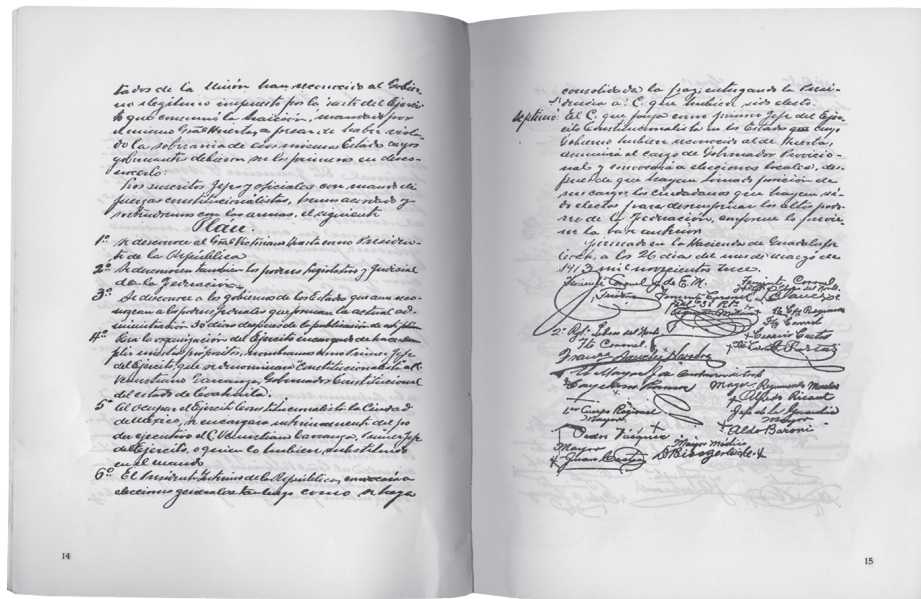 tados de la Unión han reconocido al Gobier-
no ilegítimo impuesto por la parte del Ejérci-
to que consumó la traición, mandado por
el mismo Gral Huerta, a pesar de haber viola-
do la soberanía de esos mismos Estados, cuyos
gobernantes debieron ser los primeros en desco-
nocerlo;
los suscritos Jefes y oficiales con mando de
fuerzas constitucionalistas, hemos acordado y
sostendremos con las armas, el siguiente
Plan.
1º Se desconoce al Gral Victoriano Huerta como Presiden-
te de la República
2º Se desconocen también los poderes Legislativo y Judicial
de la Federación
3º Se desconoce a los gobiernos de los Estados que aun reco-
nozcan a los poderes federales que forman la actual ad-
ministración 30 días después de la publicación de este plan
4º Para la organización del Ejército encargado de hacer cum-
plir nuestros propósitos, nombramos como Primer Jefe
del Ejército, que se denominará Constitucionalista al C.
Venustiano Carranza, Gobernador Constitucional
del estado de Coahuila.
5º Al ocupar el Ejército Constitucionalista la Ciudad
de México, se encargará interinamente del po-
der ejecutivo el C. Venustiano Carranza, Primer Jefe
del Ejército, o quien lo hubiere substituido
en el mando
6º El Presidente Interino de la República, convocará a
elecciones generales tan luego como se haya
14
consolidado la paz, entregando la Presi-
dencia al C. que hubiere sido electo.
Septimo: El C. que funja como primer Jefe del Ejér-
cito Constitucionalista en los Estados que cuyo
Gobierno hubiere reconocido al de Huerta,
asumirá el cargo de Gobernador Provicio-
nal y convocará a elecciones locales, des-
pués de que hayan tomado posición de
sus cargos los ciudadanos que hayan si-
do electos para desempeñar los altos pode-
res de la Federación, como lo previe-
ne la base anterior
firmado en la Hacienda de Guadalupe
Coah, a los 26 días del mes de marzo de
1913 mil novecientos trece.
Teniente Coronel J de E. M.
Teniente Coronel
Teniente Coronel
2º Rgto Libres del Norte
Tte Coronel
Cesario Castro
Mayor
Mayor
Alfredo Ricaut
Mayor
Pedro Vázquez
Aldo Baroni
Mayor
Juan Castro
Mayor Médico
15